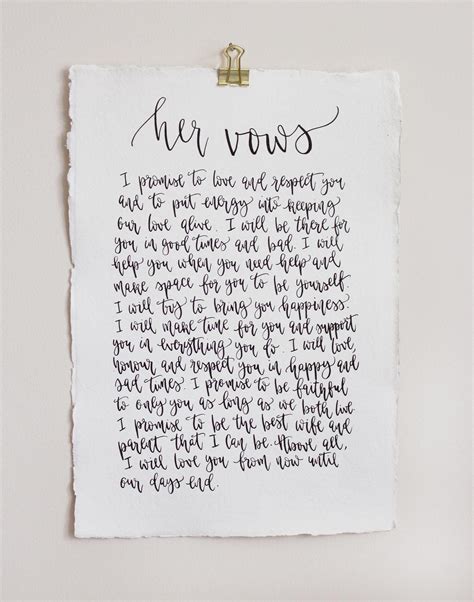 her vows
I promise to love and respect you
and to put energy into keeping
our love alive. I will be there for
you in good times and bad. I will
help you when you need help and
make space for you to be yourself.
I will try to bring you happiness.
I will make time for you and support
you in everything you do. I will love
honour and respect you in happy and
sad times. I promise to be faithful
to only you as long as we both live.
I promise to be the best wife and
parent that I can be. Above all,
I will love you from now until
our days end.